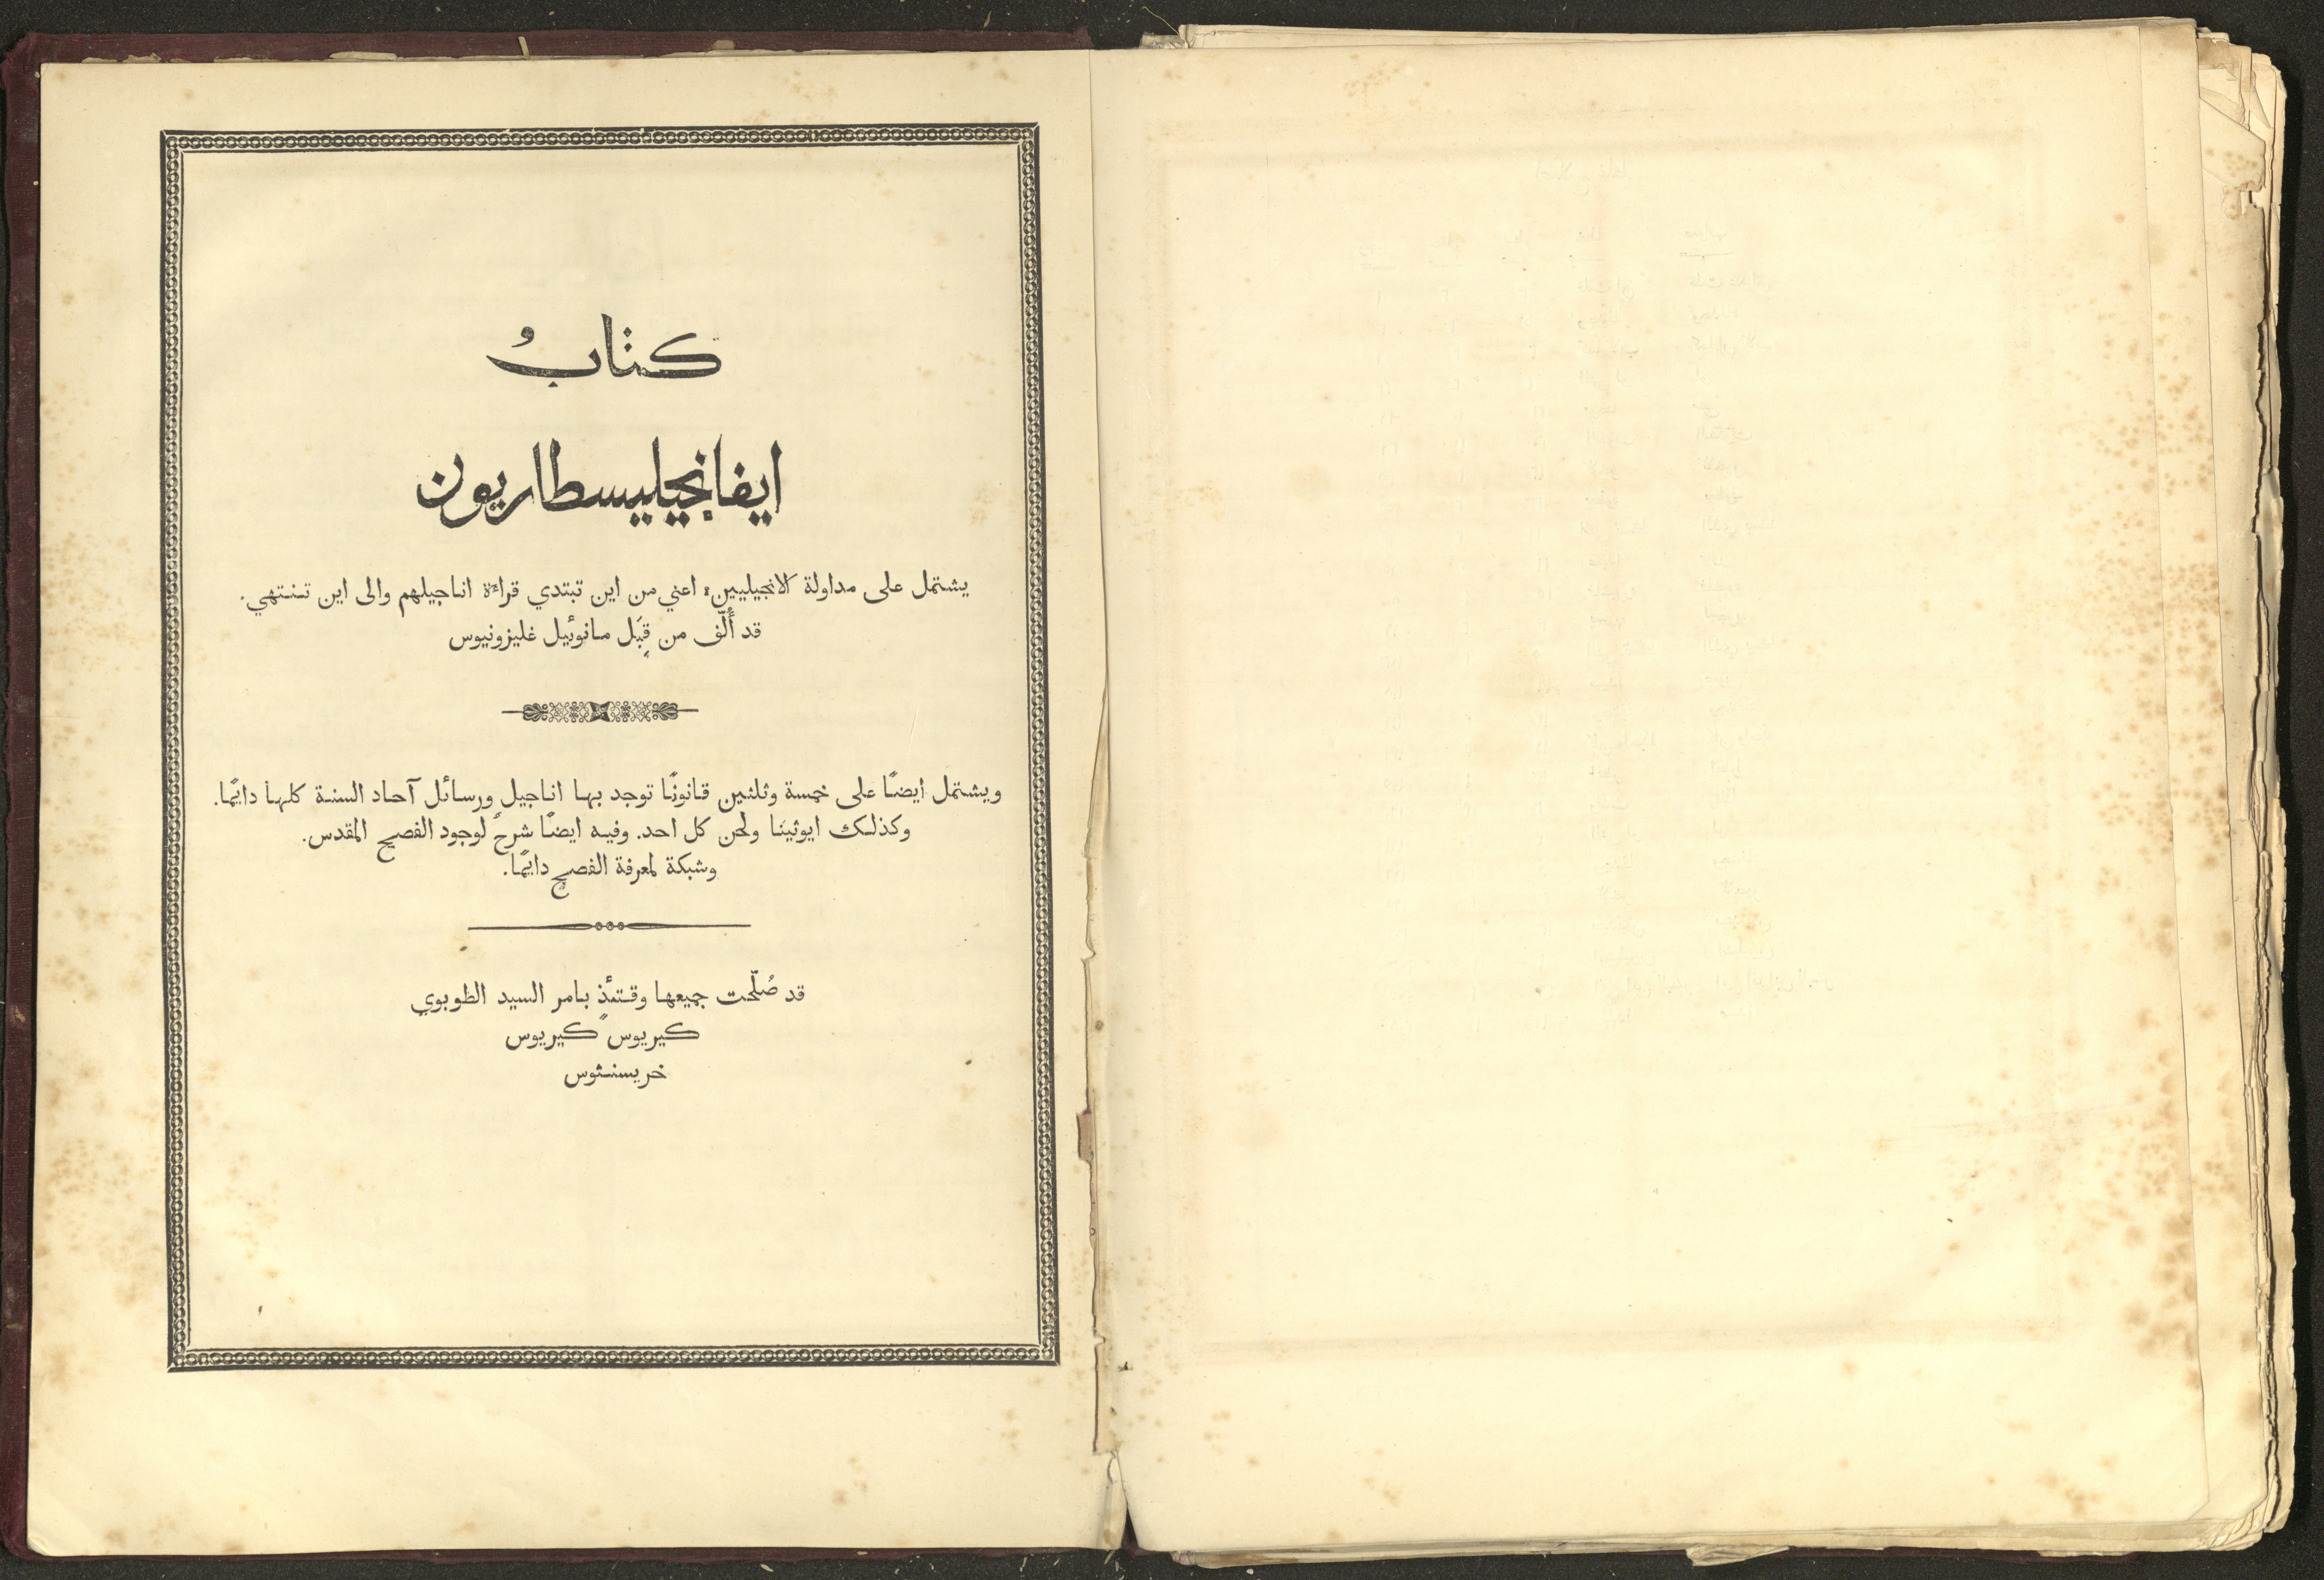 كتابُ
ايفانجيليسطاريون
يشتمل على مداولة الانجيليين؛ اعني من اين تبتدي قراءة اناجيلهم والى اين تنتهي.
قد أُلّف من قِبَل مانوئيل غليزونيوس
ويشتمل ايضًا على خمسة وثلثين قانونًا توجد بها اناجيل ورسائل آحاد السنة كلها دايمًا.
وكذلك ايوثينا ولحن كل احد. وفيه ايضًا شرحٌ لوجود الفصح المقدس.
وشبكة لمعرفة الفصح دايمًا.
قد صُلّحت جميعها وقتئذٍ بامر السيد الطوبوي
كيريوس كيريوس
خريسنثوس